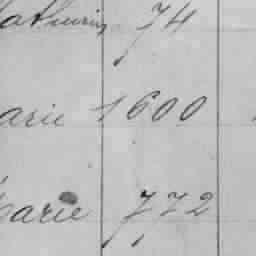 athurin 74
arie 1600
arie 772